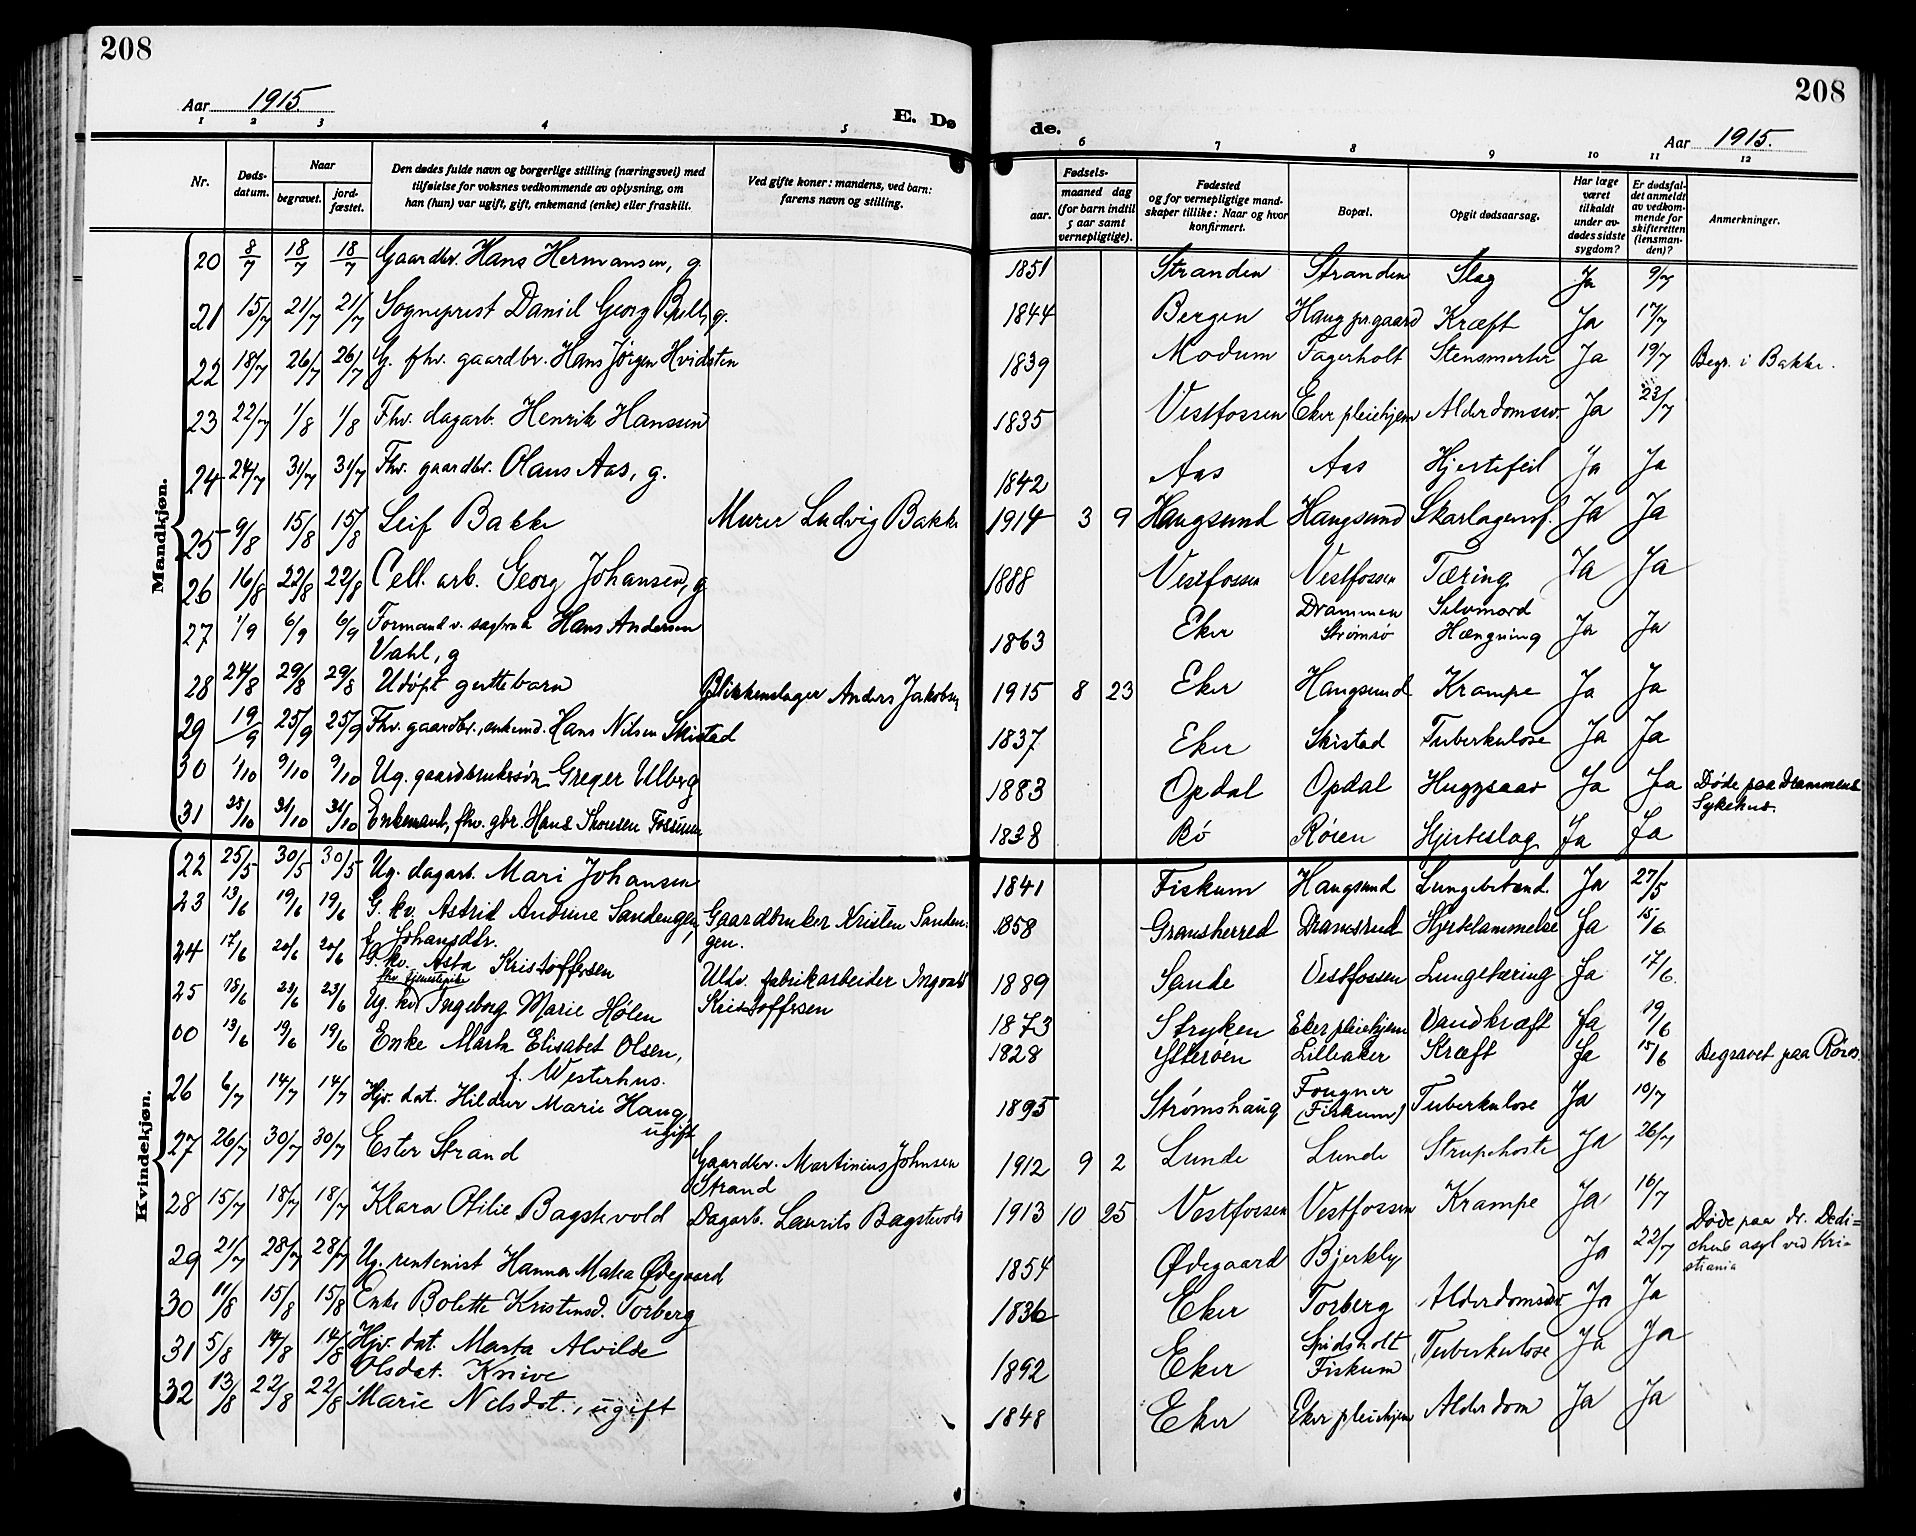 208
208
Aar 1915.
E. Dø
de.
Aar 1915.
1 2 3 4 5 6 7 8 9 10 11 12
Nr. Døds-datum. Naar begravet. jord-fæstet. Den dødes fulde navn og borgerlige stilling (næringsvei) med tilføielse for voksnes vedkommende av oplysning, om han (hun) var ugift, gift, enkemand (enke) eller fraskilt. Ved gifte koner: mandens, ved barn: farens navn og stilling. Fødsels- aar. maaned dag (for barn indtil 5 aar samt vernepligtige). Fødested og for vernepligtige mandskaper tillike: Naar og hvor konfirmert. Bopæl. Opgit dødsaarsag. Har læge været tilkaldt under avdødes sidste sygdom? Er dødsfaldet anmeldt av vedkommende for skifteretten (lensmanden)? Anmerkninger.
Mandkjøn.
20 8/7 18/7 18/7 Gaardbr. Hans Hermansen, g 1851 Stranden Stranden Slag Ja 9/7
21 15/7 21/7 21/7 Sogneprest Daniel Georg Brell, g. 1844 Bergen Haug pr.gaard Kræft Ja 17/7
22 18/7 26/7 26/7 G. fhv. gaardbr. Hans Jørgen Hvidsten 1839 Modum Fagerholt Stensmerter Ja 19/7 Begr. i Bakke.
23 22/7 1/8 1/8 Fhv. dagarb. Henrik Hanssen 1835 Vestfossen Eker pleiehjem Alderdomssv. Ja 23/7
24 24/7 31/7 31/7 Fhv. gaardbr. Olaus Aas, g. 1842 Aas Aas Hjertefeil Ja Ja
25 9/8 15/8 15/8 Leif Bakke Murer Ludvig Bakke 1914 3 9 Haugsund Haugsund Skarlagensf. Ja Ja
26 16/8 22/8 22/8 Cell. arb. Georg Johansen, g 1888 Vestfossen Vestfossen Tæring Ja Ja
27 1/9 6/9 6/9 Formand v. sagbruk Hans Andersen 1863 Eker Drammen Selvmord Ja Ja
Vahl, g Strømsø Hængning
28 24/8 29/8 29/8 Udøpt guttebarn Blikkenslager Anders Jakobsen 1915 8 23 Eker Haugsund Krampe Ja Ja
29 19/9 25/9 25/9 Fhv. gaardbr., enkemd. Hans Nilsen Skistad 1837 Eker Skistad Tuberkulose Ja Ja
30 1/10 9/10 9/10 Ug. gaardbrukersøn Greger Ulberg 1883 Opdal Opdal Huggsaar Ja Ja Døde paa Drammens
Sykehus.
31 25/10 31/10 31/10 Enkemand, fhv. gbr. Hans Thoresen Fossum 1838 Bø Røren Hjerteslag Ja Ja
Kvindekjøn.
22 25/5 30/5 30/5 Ug. dagarb. Mari Johansen 1841 Fiskum Haugsund Lungebetænd. Ja 27/5
23 13/6 19/6 19/6 G. kv. Astrid Andrine Sandengen, Gaardbruker Kristen Sanden- 1858 Gransherred Dramsrud Hjertelammelse Ja 15/6
f. Johansdtr. gen.
24 17/6 20/6 20/6 G. kv. Asta Kristoffersen Uthv. fabrikarbeider Ingvald 1889 Sande Vestfossen Lungetæring Ja 17/6
fhv. tjenestepike Kristoffersen
25 18/6 23/6 23/6 Ug. kv. Ingeborg Marie Hølen 1873 Stryken Eker pleiehjem Vandkræft Ja 19/6
00 13/6 19/6 19/6 Enke Marta Elisabet Olsen, 1828 Ytterøen Lilleaker Kræft Ja 15/6 Begravet paa Røros.
f. Westerhus.
26 6/7 14/7 14/7 Hjv. dat. Hildur Marie Haug, 1895 Strømshaug Fougner Tuberkulose Ja 10/7
ugift (Fiskum)
27 26/7 30/7 30/7 Ester Strand Gaardbr. Martinius Johnsen 1912 9 2 Lunde Lunde Strupehoste Ja 26/7
Strand
28 15/7 18/7 18/7 Klara Otilie Bagstevold Dagarb. Laurits Bagstevold 1913 10 25 Vestfossen Vestfossen Krampe Ja 16/7
29 21/7 28/7 28/7 Ug. rentenist Hanna Maria Ødegaard 1854 Ødegaard Bjerkly Ja 22/7 Døde paa dr. Dedi-
chens asyl ved Kri-
stiania
30 11/8 15/8 15/8 Enke Bolette Kristensd. Torberg 1836 Eker Torberg Alderdomssv. Ja Ja
31 5/8 14/8 14/8 Hjv. dat. Marta Alvilde 1892 Eker Spidsholt Tuberkulose Ja Ja
Olsdat. Knive Fiskum
32 13/8 22/8 22/8 Marie Nilsdat., ugift 1848 Eker Eker pleiehjem Alderdom Ja Ja